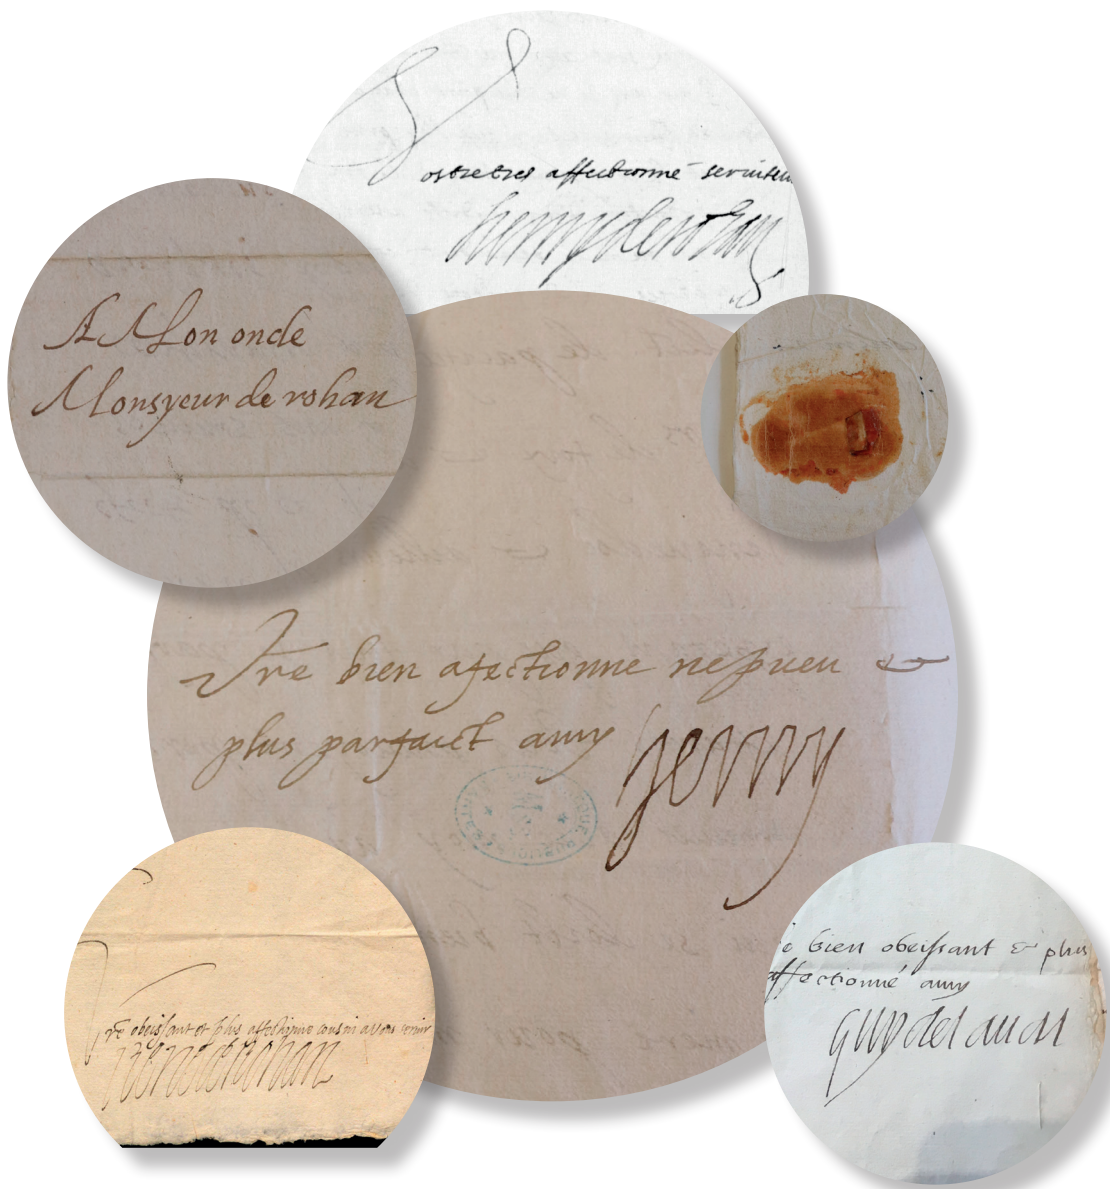 ostre tres affectionné serviteu
henry de rohan
A Mon oncle
Monsyeur de rohan
Vre bien afectionne nepueu &
plus parfaict amy henry
vre obeissant et plus affectionne cousin a vous servir
Rene de rohan
e bien obeissant & plus
affectionné amy
guy de laual